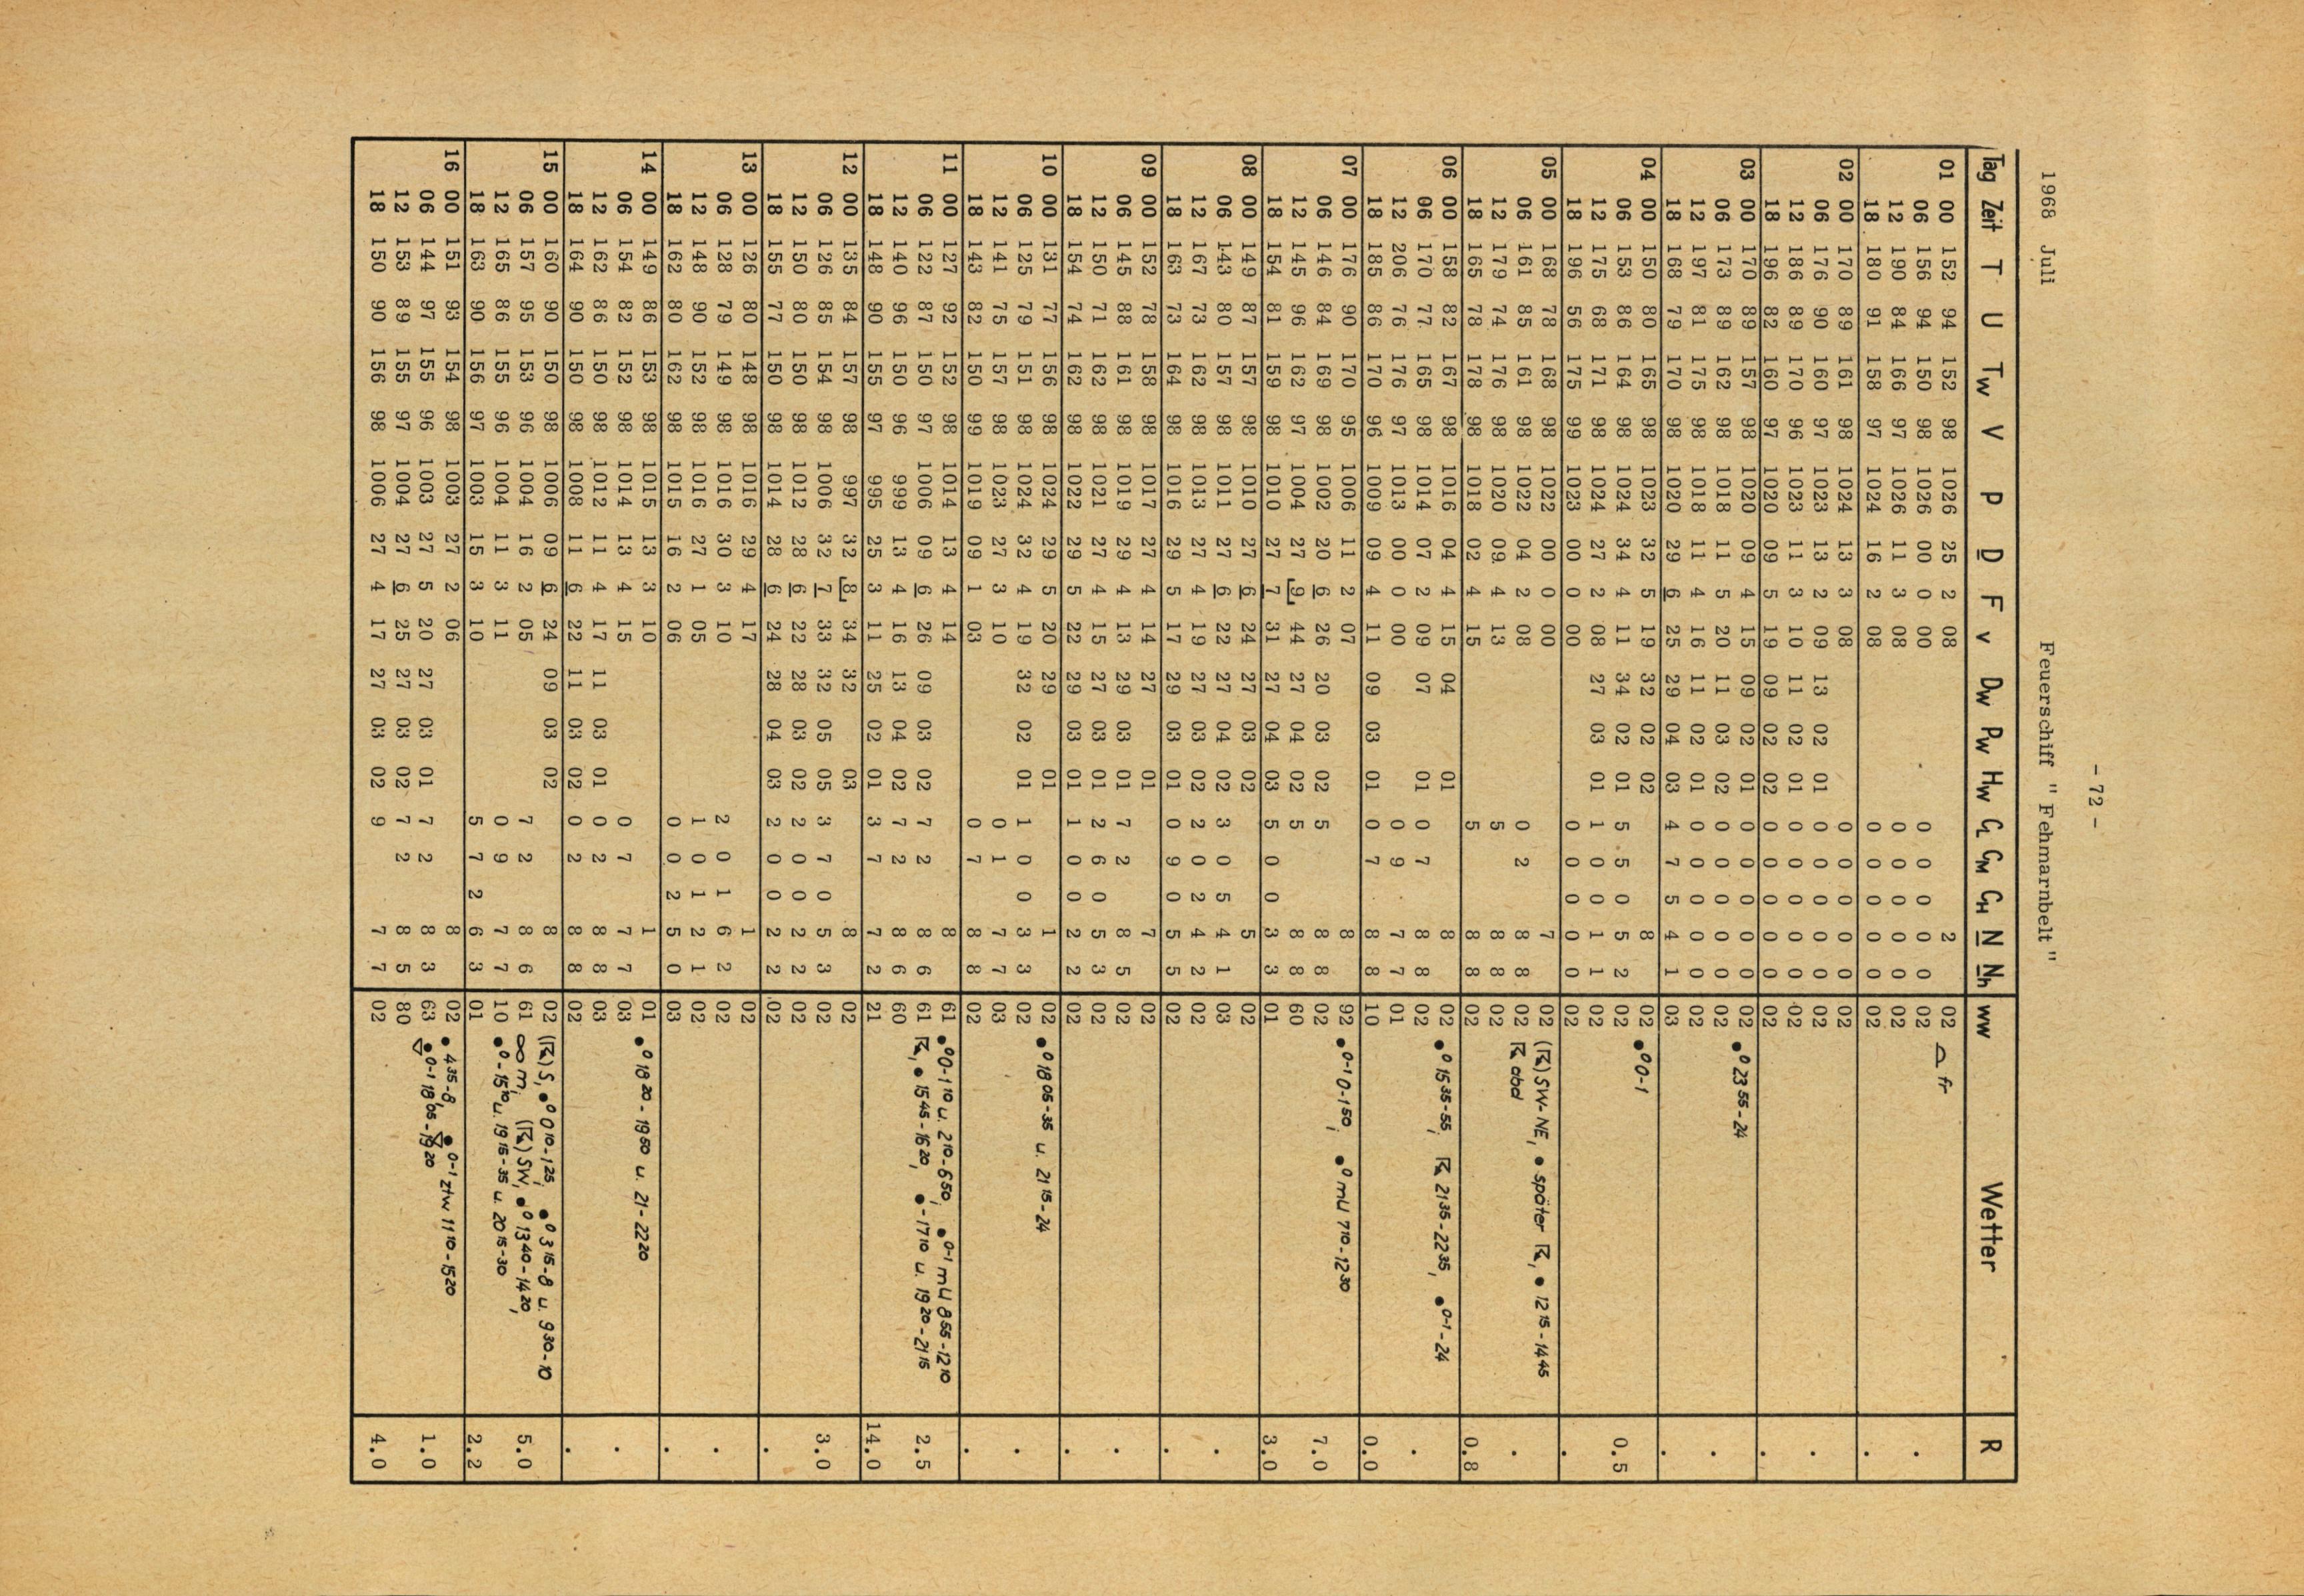 - 72 -
1968 Juli Feuerschiff " Fehmarnbelt "
Tag Zeit T U Tw V P D F v Dw Pw Hw CL CM CH N Nh ww Wetter R
01 00 152 94 152 98 1026 25 2 08 2 02 fr
06 156 94 150 98 1026 00 0 00 0 0 0 0 0 02 .
12 190 84 166 97 1026 11 3 08 0 0 0 0 0 02
18 180 91 158 97 1024 16 2 08 0 0 0 0 0 02 .
02 00 170 89 161 98 1024 13 3 08 0 0 0 0 0 02
06 176 90 160 97 1023 13 2 09 13 02 01 0 0 0 0 0 02 .
12 186 89 170 96 1023 11 3 10 11 02 01 0 0 0 0 0 02
18 196 82 160 97 1020 09 5 19 09 02 02 0 0 0 0 0 02 .
03 00 170 89 157 98 1020 09 4 15 09 02 01 0 0 0 0 0 02 •0 2355-24
06 173 89 162 98 1018 11 5 20 11 03 02 0 0 0 0 0 02 .
12 197 81 175 98 1018 11 4 16 11 02 01 0 0 0 0 0 02
18 168 79 170 98 1020 29 6 25 29 04 03 4 7 5 4 1 03 .
04 00 150 80 165 98 1023 32 5 19 32 02 02 8 02 •0 0-1
06 153 86 164 98 1024 34 4 11 34 02 01 5 5 0 5 2 02 0.5
12 175 68 171 98 1024 27 2 08 27 03 01 1 0 0 1 1 02
18 196 56 175 99 1023 00 0 00 0 0 0 0 0 02 .
05 00 168 78 168 98 1022 00 0 00 7 02 (R) SW-NE, • später R, • 1215-1445
06 161 85 161 98 1022 04 2 08 0 2 8 8 02 R abd .
12 179 74 176 98 1020 09 4 13 5 8 8 02
18 165 78 178 98 1018 02 4 15 5 8 8 02 0.8
06 00 158 82 167 98 1016 04 4 15 04 01 8 02 •0 1535-55, R 2135-2235, •0-1-24
06 170 77 165 98 1014 07 2 09 07 01 0 7 8 8 02 .
12 206 76 176 97 1013 00 0 00 0 9 7 7 01
18 185 86 170 96 1009 09 4 11 09 03 01 0 7 8 8 10 0.0
07 00 176 90 170 95 1006 11 2 07 8 92 •0-1 0-150, •0 mU 710-1230
06 146 84 169 98 1002 20 6 26 20 03 02 5 8 8 02 7.0
12 145 96 162 97 1004 27 [9 44 27 04 02 5 8 8 60
18 154 81 159 98 1010 27 7 31 27 04 03 5 0 0 3 3 01 3.0
08 00 149 87 157 98 1010 27 6 24 27 03 02 5 02
06 143 80 157 98 1011 27 6 22 27 04 02 3 0 5 4 1 03 .
12 167 73 162 98 1013 27 4 19 27 03 02 2 0 2 4 2 02
18 163 73 164 98 1016 29 5 17 29 03 01 0 9 0 5 5 02 .
09 00 152 78 158 98 1017 27 4 14 27 01 7 02
06 145 88 161 98 1019 29 4 13 29 03 01 7 2 8 5 02 .
12 150 71 162 98 1021 27 4 15 27 03 01 2 6 0 5 3 02
18 154 74 162 98 1022 29 5 22 29 03 01 1 0 0 2 2 02 .
10 00 131 77 156 98 1024 29 5 20 29 01 1 02 •0 1805-35 u. 2115-24
06 125 79 151 98 1024 32 4 19 32 02 01 1 0 0 3 3 02 .
12 141 75 157 98 1023 27 3 10 0 1 7 7 03
18 143 82 150 99 1019 09 1 03 0 7 8 8 02 .
11 00 127 92 152 98 1014 13 4 14 8 61 •0 0-110 u. 210-650, •0-1 mU 855-1210
06 122 87 150 97 1006 09 6 26 09 03 02 7 2 8 6 61 R, • 1545-1620, •-1710 u. 1920-2115 2.5
12 140 96 150 96 999 13 4 16 13 04 02 7 2 8 6 60
18 148 90 155 97 995 25 3 11 25 02 01 3 7 7 2 21 14.0
12 00 135 84 157 98 997 32 [8 34 32 03 8 02
06 126 85 154 98 1006 32 7 33 32 05 05 3 7 0 5 3 02 3.0
12 150 80 150 98 1012 28 6 22 28 03 02 2 0 0 2 2 02
18 155 77 150 98 1014 28 6 24 28 04 03 2 0 0 2 2 02 .
13 00 126 80 148 98 1016 29 4 17 1 02
06 128 79 149 98 1016 30 3 10 2 0 1 6 2 02 .
12 148 90 152 98 1016 27 1 05 1 0 1 2 1 02
18 162 80 162 98 1015 16 2 06 0 0 2 5 0 03 .
14 00 149 86 153 98 1015 13 3 10 1 01 •0 1820-1950 u. 21-2220
06 154 82 152 98 1014 13 4 15 0 7 7 7 03 .
12 162 86 150 98 1012 11 4 17 11 03 01 0 2 8 8 03
18 164 90 150 98 1008 11 6 22 11 03 02 0 2 8 8 02 .
15 00 160 90 150 98 1006 09 6 24 09 03 02 8 02 (R) S, •0 010-125, •0 315-8 u. 930-10
06 157 95 153 96 1004 16 2 05 7 2 8 6 61 ∞ m, (R) SW, •0 1340-1420, 5.0
12 165 86 155 96 1004 11 3 11 0 9 7 7 10 •0-1510 u. 1915-35 u. 2015-30
18 163 90 156 97 1003 15 3 10 5 7 2 6 3 01 2.2
16 00 151 93 154 98 1003 27 2 06 8 02 • 435-8, •0-1 ztw 1110-1520
06 144 97 155 96 1003 27 5 20 27 03 01 7 2 8 3 63 •0-1 1805-1920 1.0
12 153 89 155 97 1004 27 6 25 27 03 02 7 2 8 5 80
18 150 90 156 98 1006 27 4 17 27 03 02 9 7 7 02 4.0